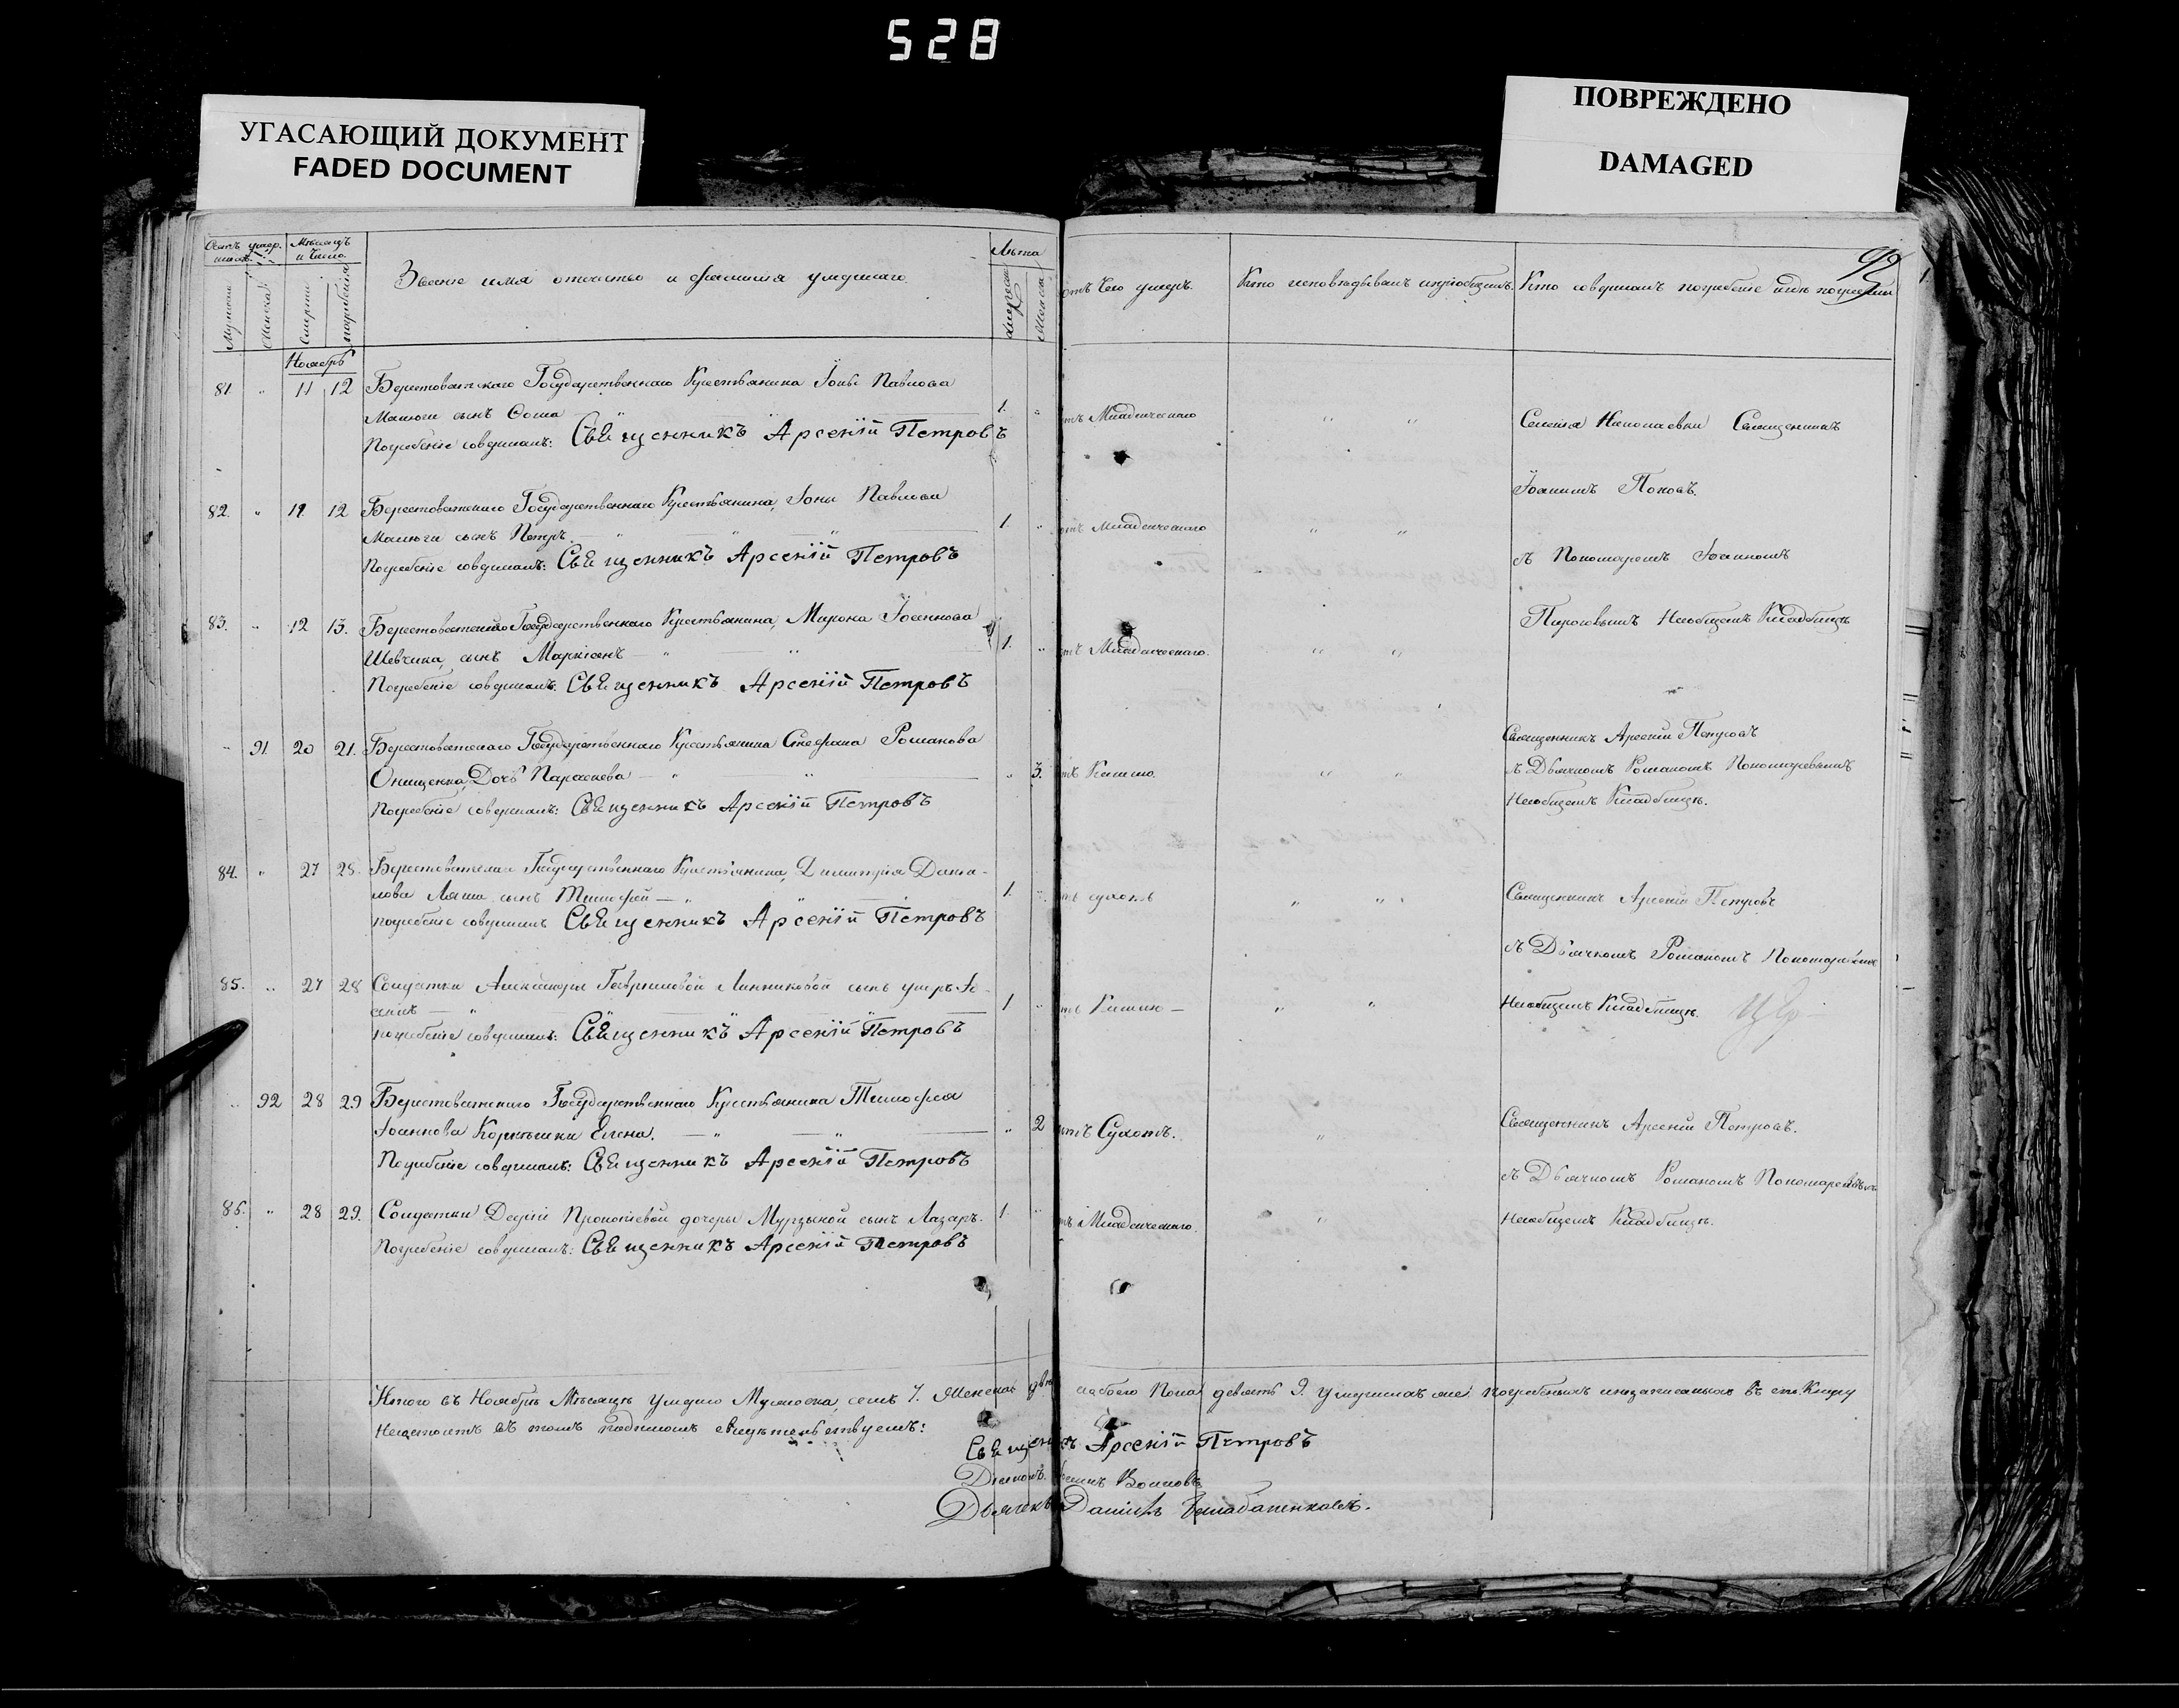 528
УГАСАЮЩИЙ ДОКУМЕНТ
FADED DOCUMENT
ПОВРЕЖДЕНО
DAMAGED
92
Счетъ умер.
Мѣсяцъ и Число
Званіе имя отчество и фамилія умершаго.
Лѣта
Мужеска
Женска
Смерти
погребенія
Мужеска
Женска
отъ Чего умеръ.
Кто исповѣдывалъ и пріобщалъ.
Кто совершалъ погребеніе и гдѣ погребены
Ноябрь
81. " 11 12 Берестоватскаго Государственнаго Крестьянина Іоны Павлова
Малюги сынъ Ѳома 1. " отъ Младенческаго " "
Погребеніе совершалъ: Священникъ Арсеній Петровъ
Священникъ
Іоанномъ Поповъ.
82. " 11 12 Берестоватскаго Государственнаго Крестьянина, Іоны Павлова
Малюги сынъ Петръ 1. " отъ Младенческаго " "
Погребеніе совершалъ: Священникъ Арсеній Петровъ
съ Пономаремъ Іоанномъ
83. " 12 13. Берестоватскаго Государственнаго Крестьянина, Мирона Іоаннова
Шевчика, сынъ Маркіанъ 1. " отъ Младенческаго. " "
Погребеніе совершалъ: Священникъ Арсеній Петровъ
Наобщемъ Кладбищѣ
" 91 20 21. Берестоватскаго Государственнаго Крестьянина Стефана Романова
Онищенка, Дочь Параскева " 3. отъ Кашлю. " "
Погребеніе совершалъ: Священникъ Арсеній Петровъ
Священникъ Арсеній Петровъ
съ Дьячкомъ Романомъ Пономаревымъ
Наобщемъ Кладбищѣ.
84. " 27 28. Берестоватскаго Государственнаго Крестьянина, Димитрія Дани-
лова Ляша сынъ Тимофей 1. " отъ сухотъ " "
погребеніе совершалъ Священникъ Арсеній Петровъ
Священникъ Арсеній Петровъ
съ Дьячкомъ Романомъ Пономаревымъ
Наобщемъ Кладбищѣ.
85. " 27 28 Солдатки Гавриловой Линниковой сынъ 1 " отъ Кашлю " "
погребеніе совершалъ: Священникъ Арсеній Петровъ
" 92 28 29 Берестоватскаго Государственнаго Крестьянина Тимофея
Іоаннова Елена. " 2 отъ Сухотъ. "
Погребеніе совершалъ: Священникъ Арсеній Петровъ
Священникъ Арсеній Петровъ.
съ Дьячкомъ Романомъ Пономаревымъ
Наобщемъ Кладбищѣ.
86. " 28 29. Солдатки Прокопіевой дочери сынъ Лазарь. 1. " отъ Младенческаго. "
Погребеніе совершалъ: Священникъ Арсеній Петровъ
Итого въ Ноябрѣ Мѣсяцѣ умерло Мужеска, семь 7. Женска двѣ обоего Пола девять 9. умершихъ не погребенныхъ и незаписанныхъ въ сію Книгу
Несостоитъ въ томъ подписомъ свидѣтельствуемъ:
Священникъ Арсеній Петровъ
Діаконъ
Дьячекъ Даніилъ